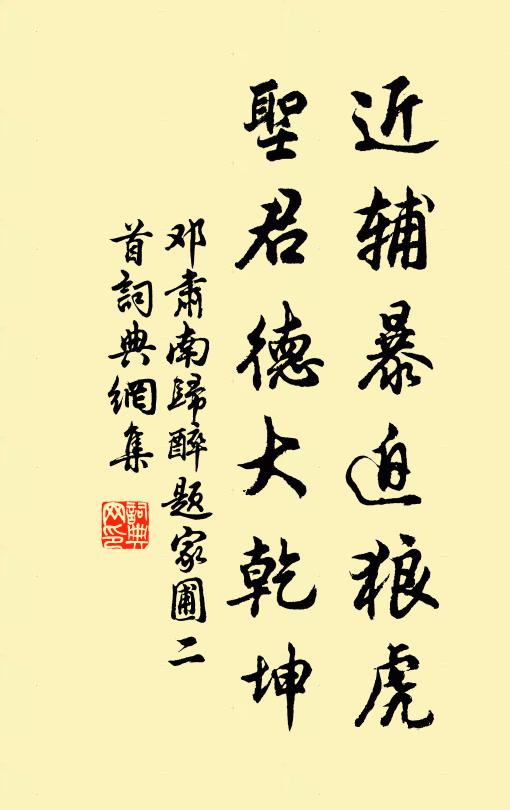 近辅暴迫狼虎
聖君德大乾坤
邓肃南歸醉题家圃二
首詞典網集
詞典网印